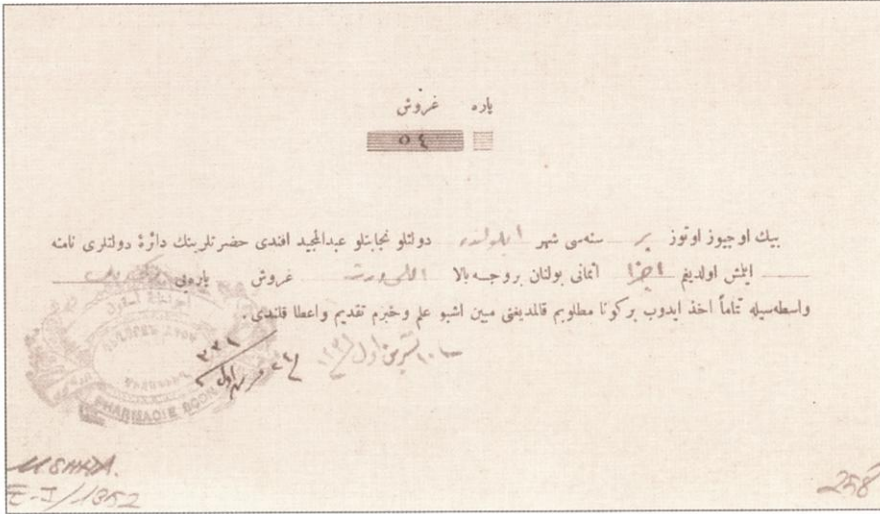 پاره غروش
٥٤
بیك اوچیوز اوتوز بر سنه‌سی شهر ایلولنده دولتلو نجابتلو عبدالمجید افندی حضرتلرینك دائرهٔ دولتلری نامنه
ایتمش اولدیغم اجزا اثمانی بولنان بروجه بالا اللی درت غروش پاره‌یی
واسطه‌سیله تماماً اخذ ایدوب بركونا مطلوبم قالمدیغنی مبین اشبو علم وخبرم تقدیم واعطا قلندی.
١٠ تشرین اول ١٣٣١
PHARMACIE
E-I/1352
258